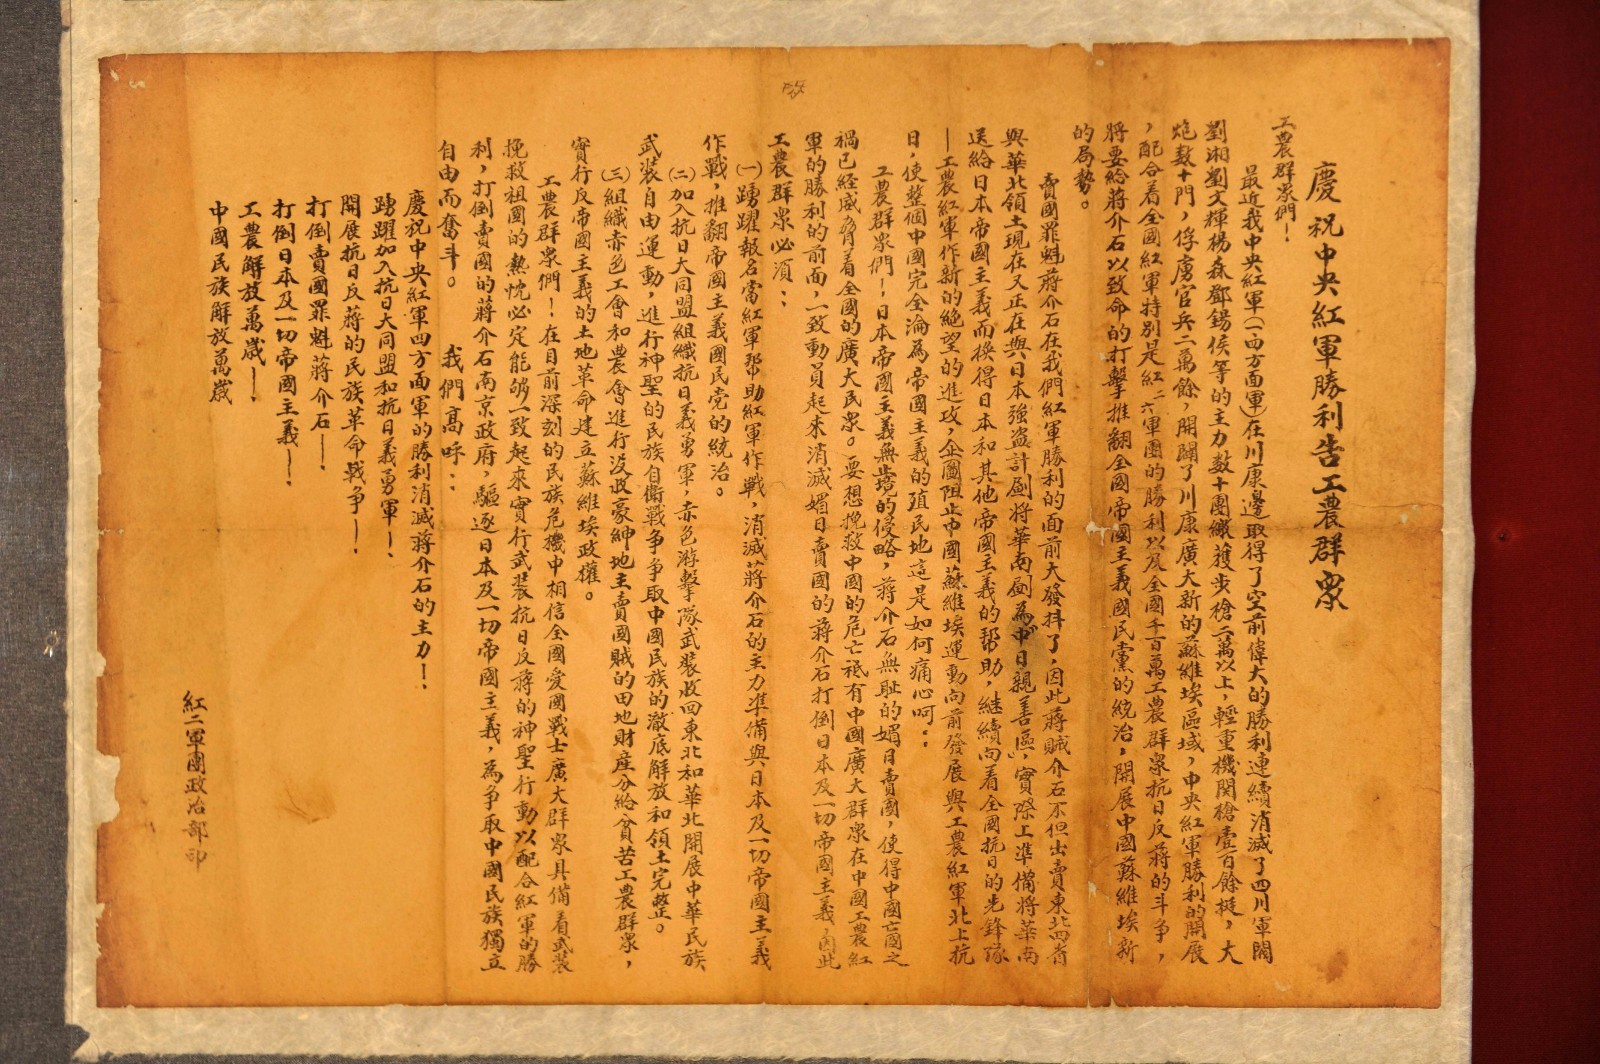 慶祝中央紅軍勝利告工農群眾
工農群眾們！
最近我中央紅軍(一四方面軍)在川康邊取得了空前偉大的勝利連續消滅了四川軍閥
劉湘劉文輝楊森鄧錫侯等的主力数十團繳獲步槍二萬以上，輕重機関槍壹百餘挺，大
炮数十門，俘虜官兵二萬餘，開闢了川康廣大新的蘇維埃區域，中央紅軍勝利的開展
，配合着全國紅軍特別是紅二六軍團的勝利以及全國千百萬工農群眾抗日反蔣的斗争，
將要給蔣介石以致命的打擊推翻全國帝國主義國民黨的統治，開展中國蘇維埃新
的局勢。
賣國罪魁蔣介石在我們紅軍勝利的面前大發抖了，因此蔣賊介石不但出賣東北四省
與華北領土現在又正在與日本強盜計劃將華南劃為“中日親善區”，實際上準備將華南
送給日本帝國主義而換得日本和其他帝國主義的帮助，継續向着全國抗日的先鋒隊
—工農紅軍作新的絶望的進攻，企圖阻止中國蘇維埃運動向前發展與工農紅軍北上抗
日，使整個中國完全淪為帝國主義的殖民地這是如何痛心呵：
工農群眾們！日本帝國主義無境的侵略，蔣介石無恥的媚日賣國，使得中國亡國之
禍已經威脅着全國的廣大民眾。要想挽救中國的危亡祗有中國廣大群眾在中國工農紅
軍的勝利的前面，一致動員起來消滅媚日賣國的蔣介石打倒日本及一切帝國主義，因此
工農群眾必須：
(一)踴躍報名當紅軍帮助紅軍作戰，消滅蔣介石的主力準備與日本及一切帝國主義
作戰，推翻帝國主義國民党的統治。
(二)加入抗日大同盟組織抗日義勇軍，赤色游擊隊武裝收回東北和華北開展中華民族
武裝自由運動，進行神聖的民族自衛戰争争取中國民族的澈底解放和領土完整。
(三)組織赤色工會和農會進行没收豪紳地主賣國賊的田地財産分給貧苦工農群眾，
實行反帝國主義的土地革命建立蘇維埃政權。
工農群眾們！在目前深刻的民族危機中相信全國愛國戰士廣大群眾具備着武裝
挽救祖國的熱忱必定能够一致起來實行武裝抗日反蔣的神聖行動以配合紅軍的勝
利，打倒賣國的蔣介石南京政府，驅逐日本及一切帝國主義，為争取中國民族獨立
自由而奮斗。 我們高呼：
慶祝中央紅軍四方面軍的勝利消滅蔣介石的主力！
踴躍加入抗日大同盟和抗日義勇軍！
開展抗日反蔣的民族革命戦争！
打倒賣國罪魁蔣介石！
打倒日本及一切帝國主義！
工農解放萬歲！
中國民族解放萬歲
紅二軍團政治部印